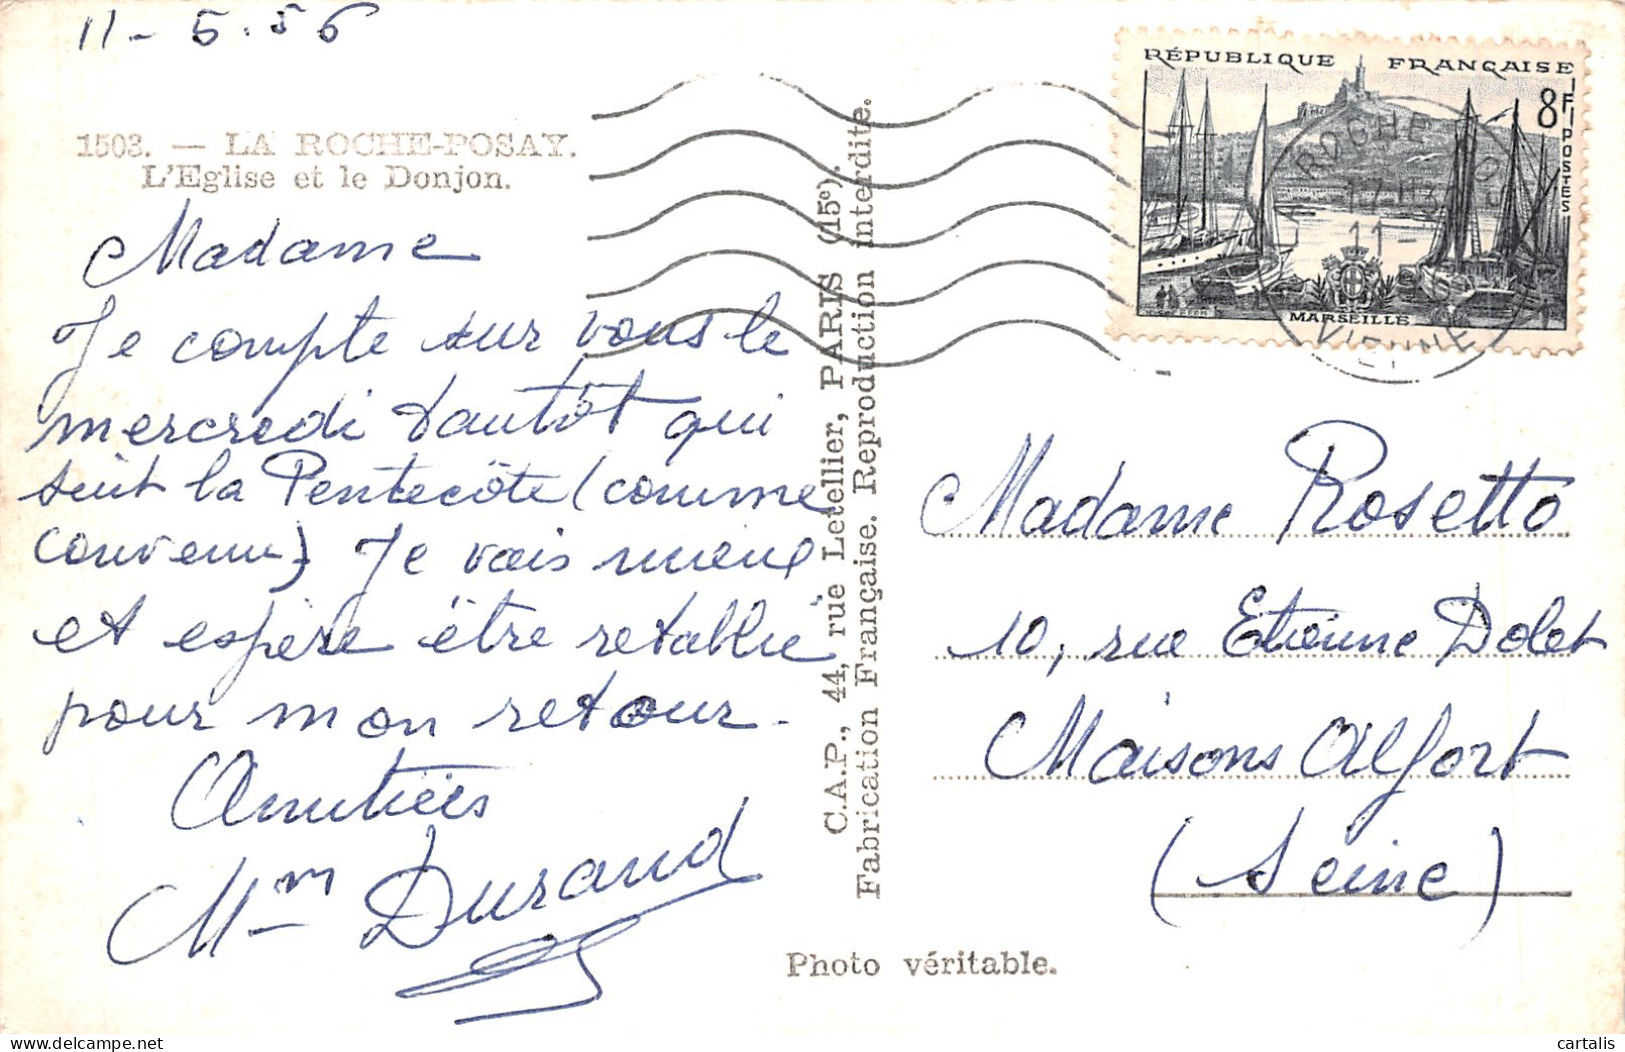 11-5.56
1503. — LA ROCHE-POSAY.
L'Eglise et le Donjon.
Madame
Je compte sur vous le
mercredi tantôt qui
suit la Pentecôte (comme
convenu) Je vais mieux
et espère être rétablie
pour mon retour.
Amitiés
Mm Durand
C.A.P., 44, rue Letellier, PARIS (15e).
Fabrication Française. Reproduction interdite.
Photo véritable.
RÉPUBLIQUE FRANÇAISE
8F
POSTES
MARSEILLE
ROCHE
17 H
11-
VIENNE
Madame Rosetto
10, rue Etienne Dolet
Maisons Alfort
(Seine)
cartalis
delcampe.net